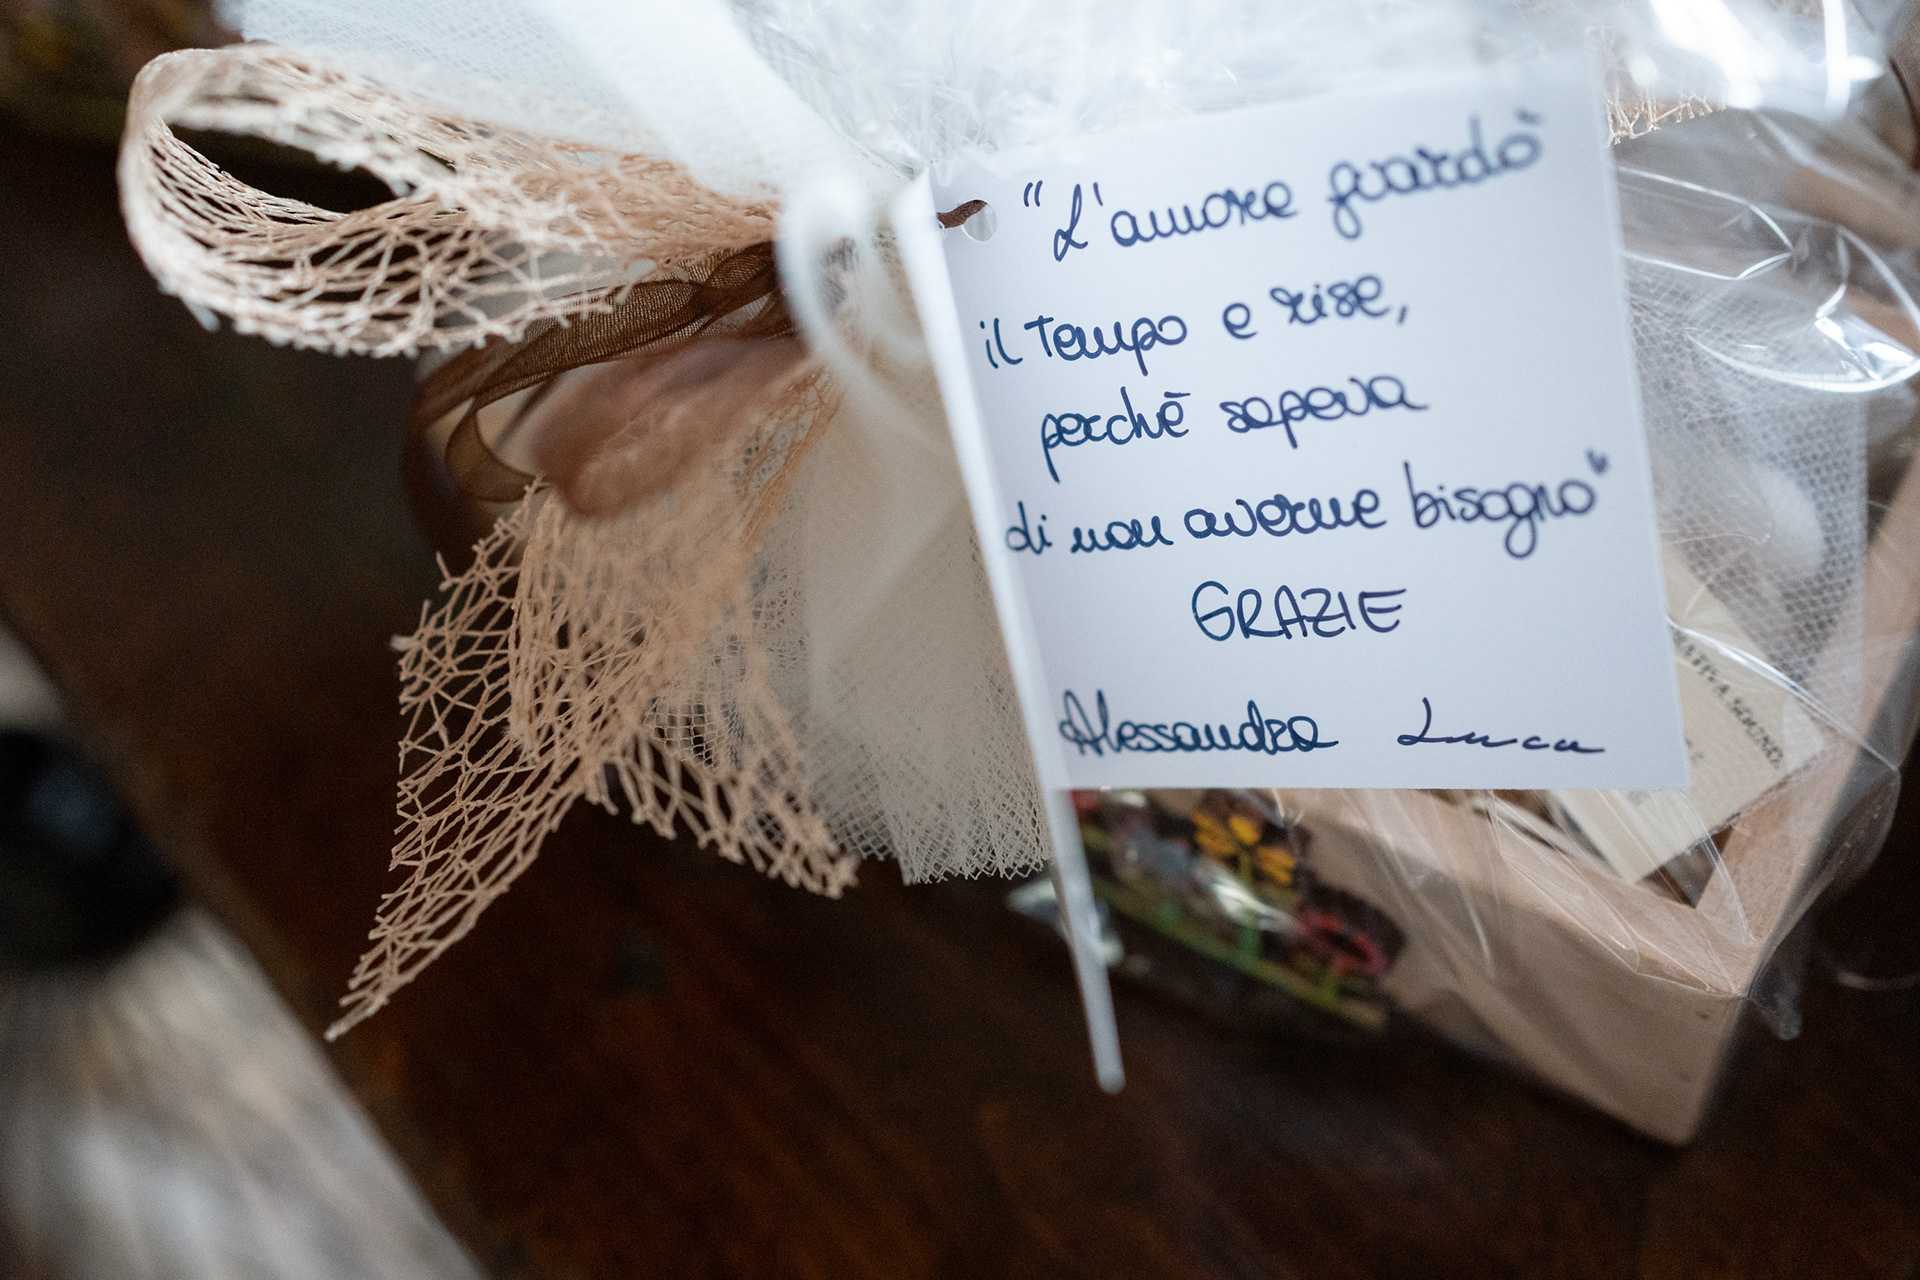 "L'amore guardò"
il tempo e rise,
perchè sapeva
di non averne bisogno"
GRAZIE
Alessandra Luca